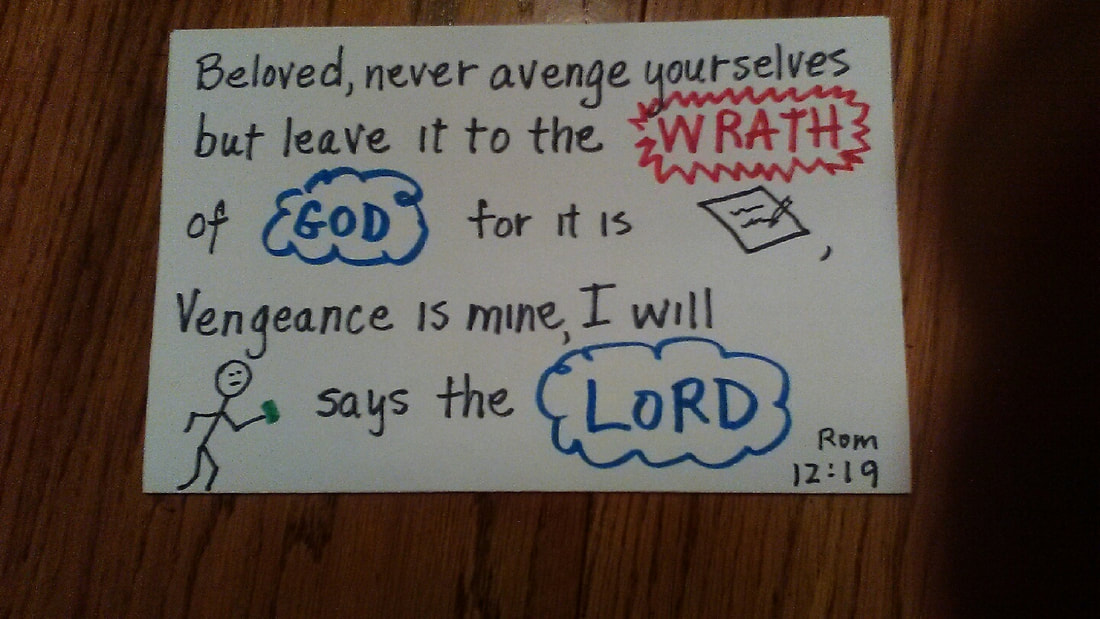 Beloved, never avenge yourselves
but leave it to the WRATH
of GOD for it is ,
Vengeance is mine, I will
says the LORD
Rom
12:19